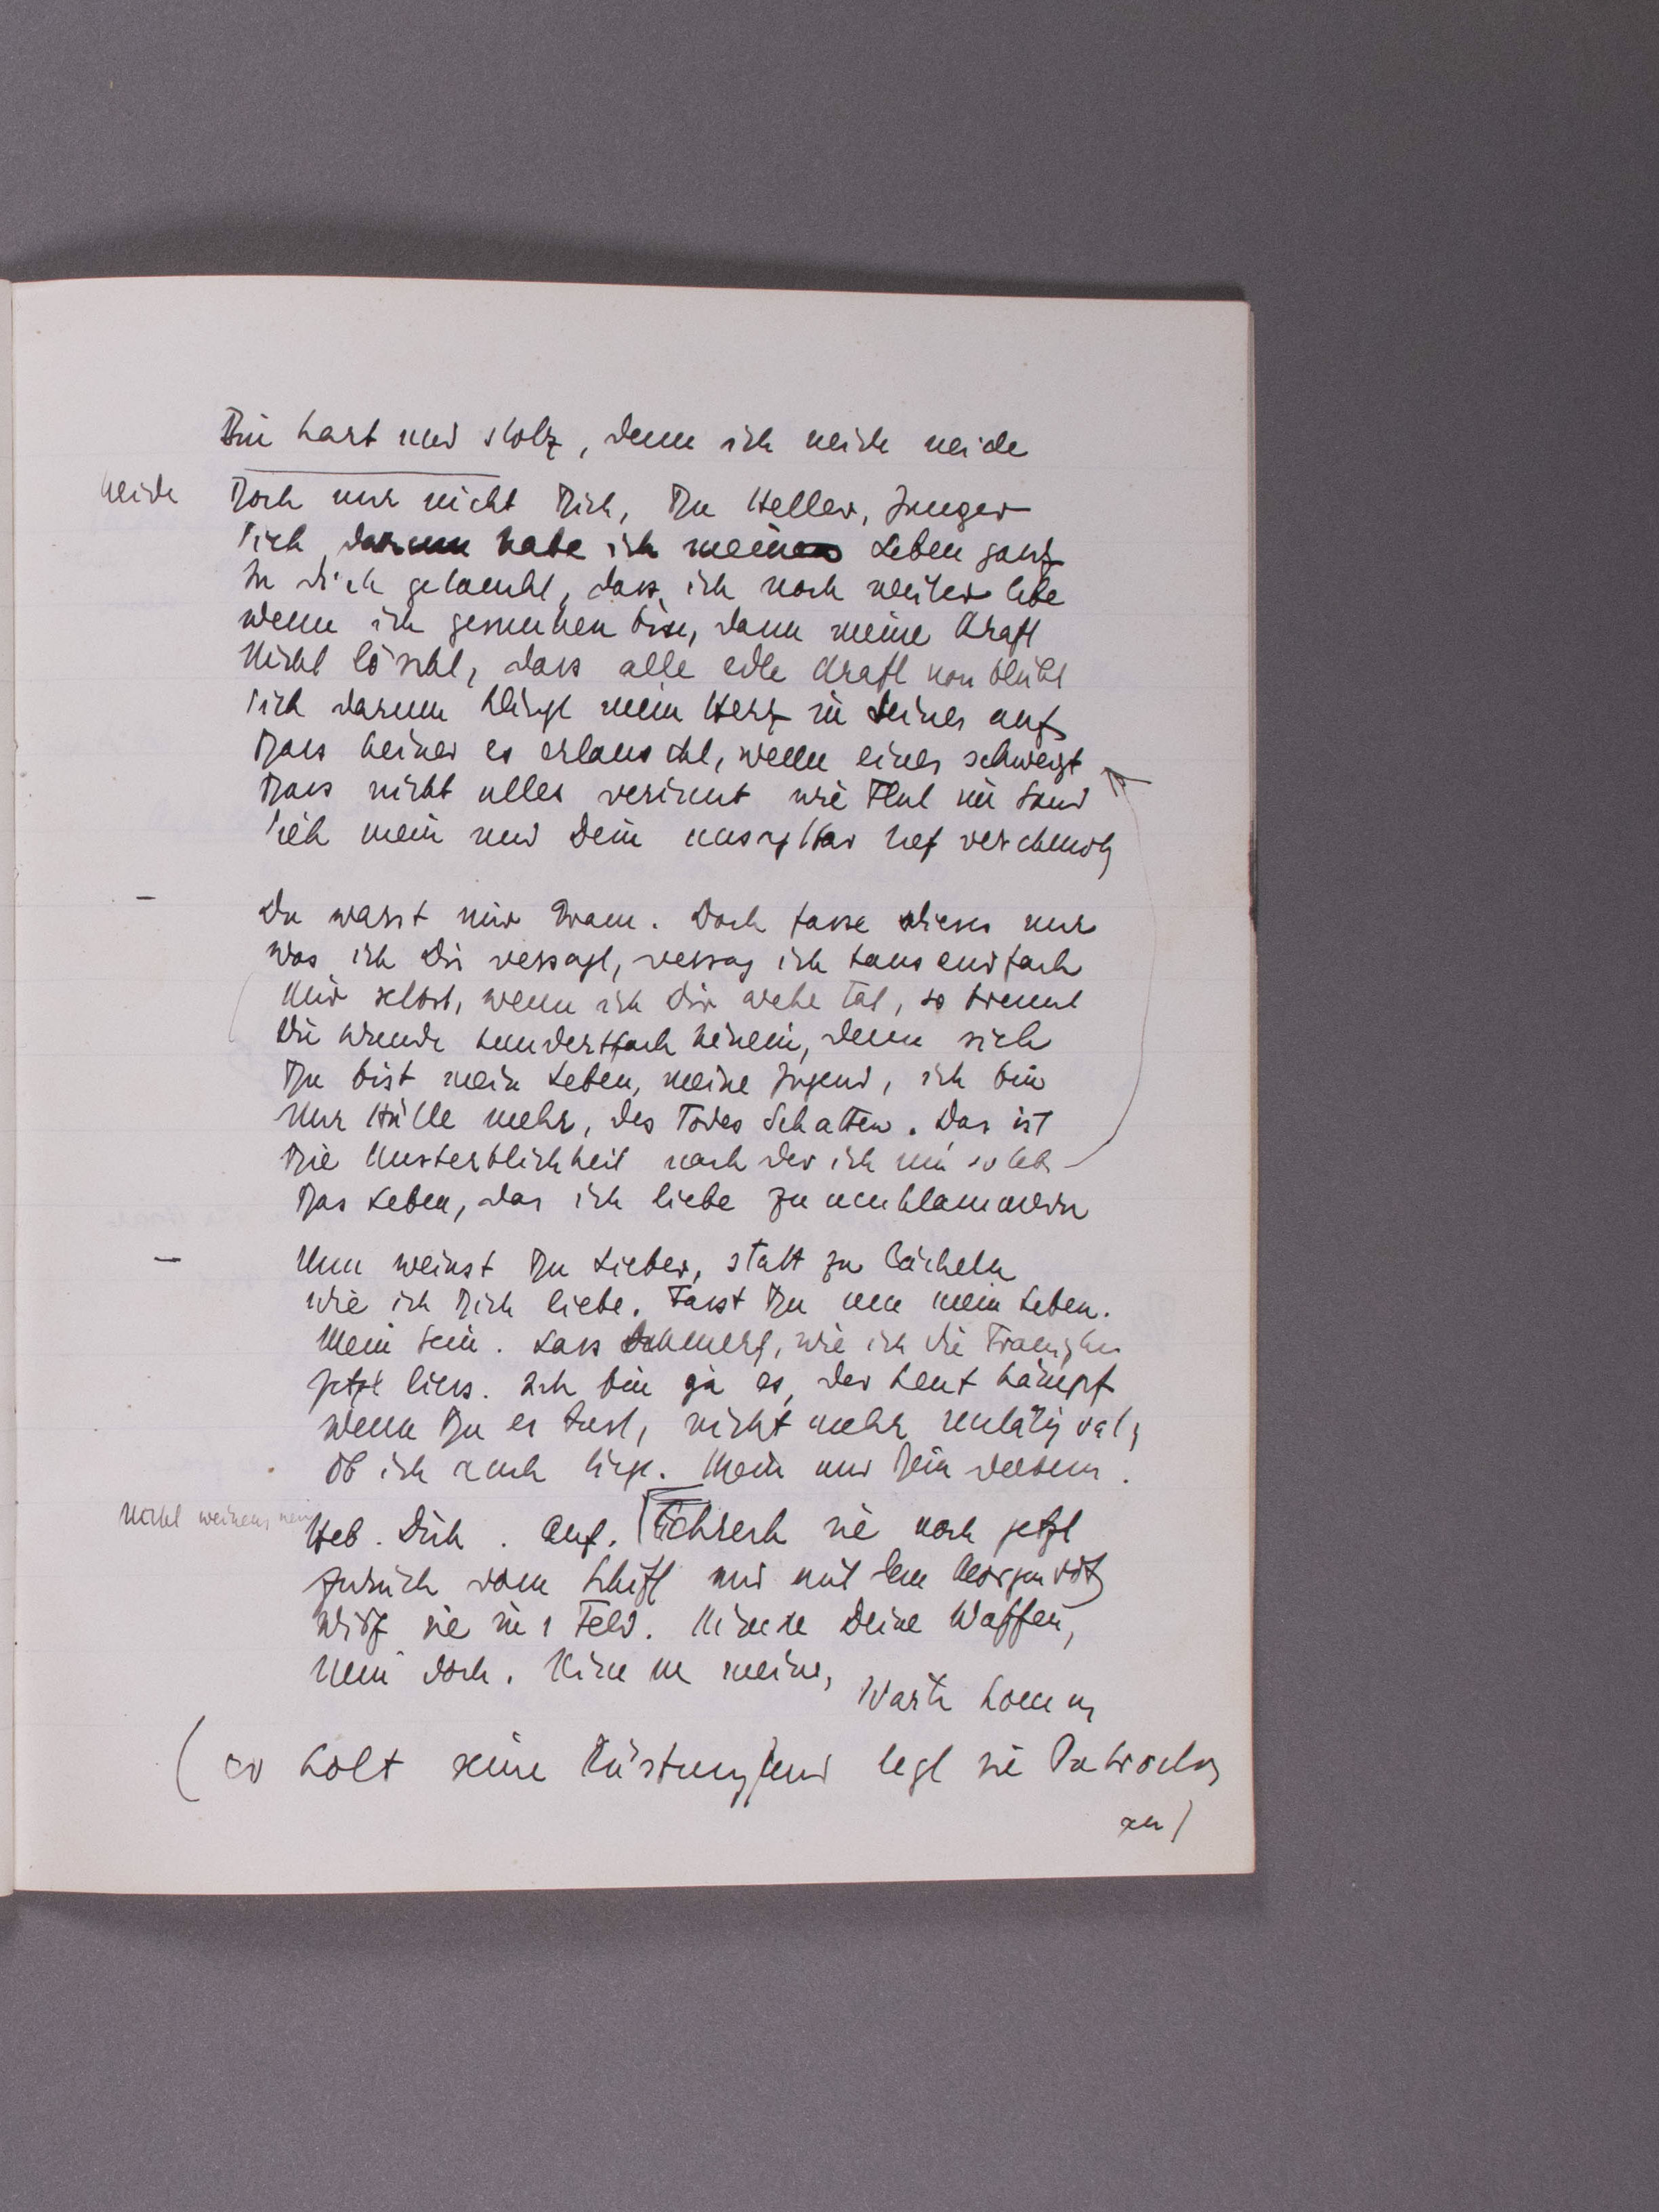 Bin hart und stolz, denn ich neide neide
neide
Doch nur nicht Dich, Du Heller, Junger
Sieh, darum habe ich mein Leben ganz
In dich getaucht, dass ich noch weiter lebe
wenn ich gesunken bin, dann meine Kraft
Nicht löscht, dass alle edle Kraft von blüht
Sieh darum klingt mein Herz in Deines auf
Dass keiner es erlauscht, wenn eines schweigt
Dass nicht alles verinnt wie Flut im Sand
Sieh mein und Dein unsagbar tief verschmolz
Du warst mir Gram. Doch fasse dieses nur
Was ich Dir versagt, versag ich tausendfach
Mir selbst, wenn ich dir wehe tat, so brennt
Die Wunde hundertfach hinein, denn sieh
Du bist mein Leben, meine Jugend, ich bin
Nur Hülle mehr, des Todes Schatten. Das ist
Die Unsterblichkeit nach der ich nie so leb
Das Leben, das ich liebe zu umklammern
Nun weinst Du Lieber, statt zu lächeln
Wie ich Dich liebe. Fasst Du nun mein Leben.
Mein Sein. Lass Schmerz, wie ich die
Jetzt liess. Ich bin ja es, der heut kämpft
Wenn Du es tust, nicht mehr untätig
Ob ich auch liege. Mein und Dein
Nicht weinens nein
Heb. Dich. Auf. Schreck sie noch jetzt
Zurück vom Schiff und mit dem Morgenrot
Wirf sie ins Feld. Nimm Deine Waffen,
Nein doch. Nimm meine,
Warte komm
(er holt seine Rüstung und legt sie Patroclos
an)